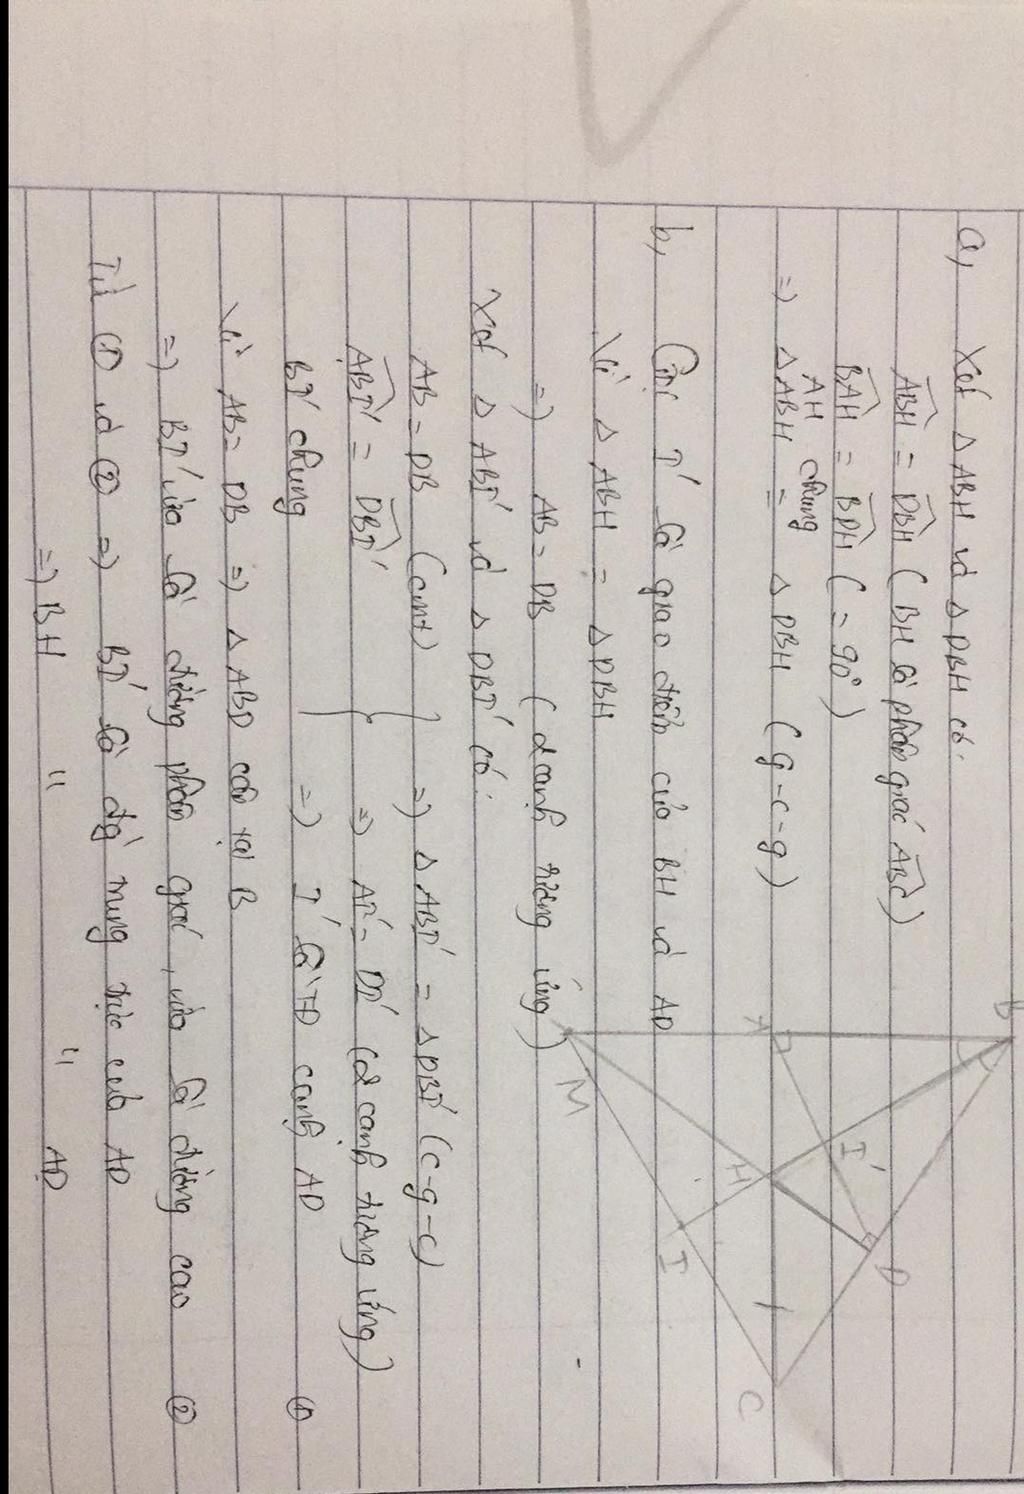 a, Xét △ ABH và △ DBH có:
ABH = DBH ( BH là phân giác ABC )
BAH = BDH ( = 90° )
AH chung
=> △ ABH = △ DBH ( g-c-g )
b, Gọi I' là giao điểm của BH và AD
Vì △ ABH = △ DBH
=> AB = DB ( 2 cạnh tương ứng )
Xét △ ABI' và △ DBI' có:
AB = DB (cmt)
ABI' = DBI'
BI' chung
=> △ ABI' = △ DBI' ( c-g-c )
=> AI' = DI' (2 cạnh tương ứng)
=> I' là TĐ cạnh AD ①
Vì AB = DB => △ ABD cân tại B
=> BI' vừa là đường phân giác, vừa là đường cao ②
Từ ① và ② => BI' là đg` trung trực của AD
=> BH " " AD
B
A
I'
D
H
M
I
C